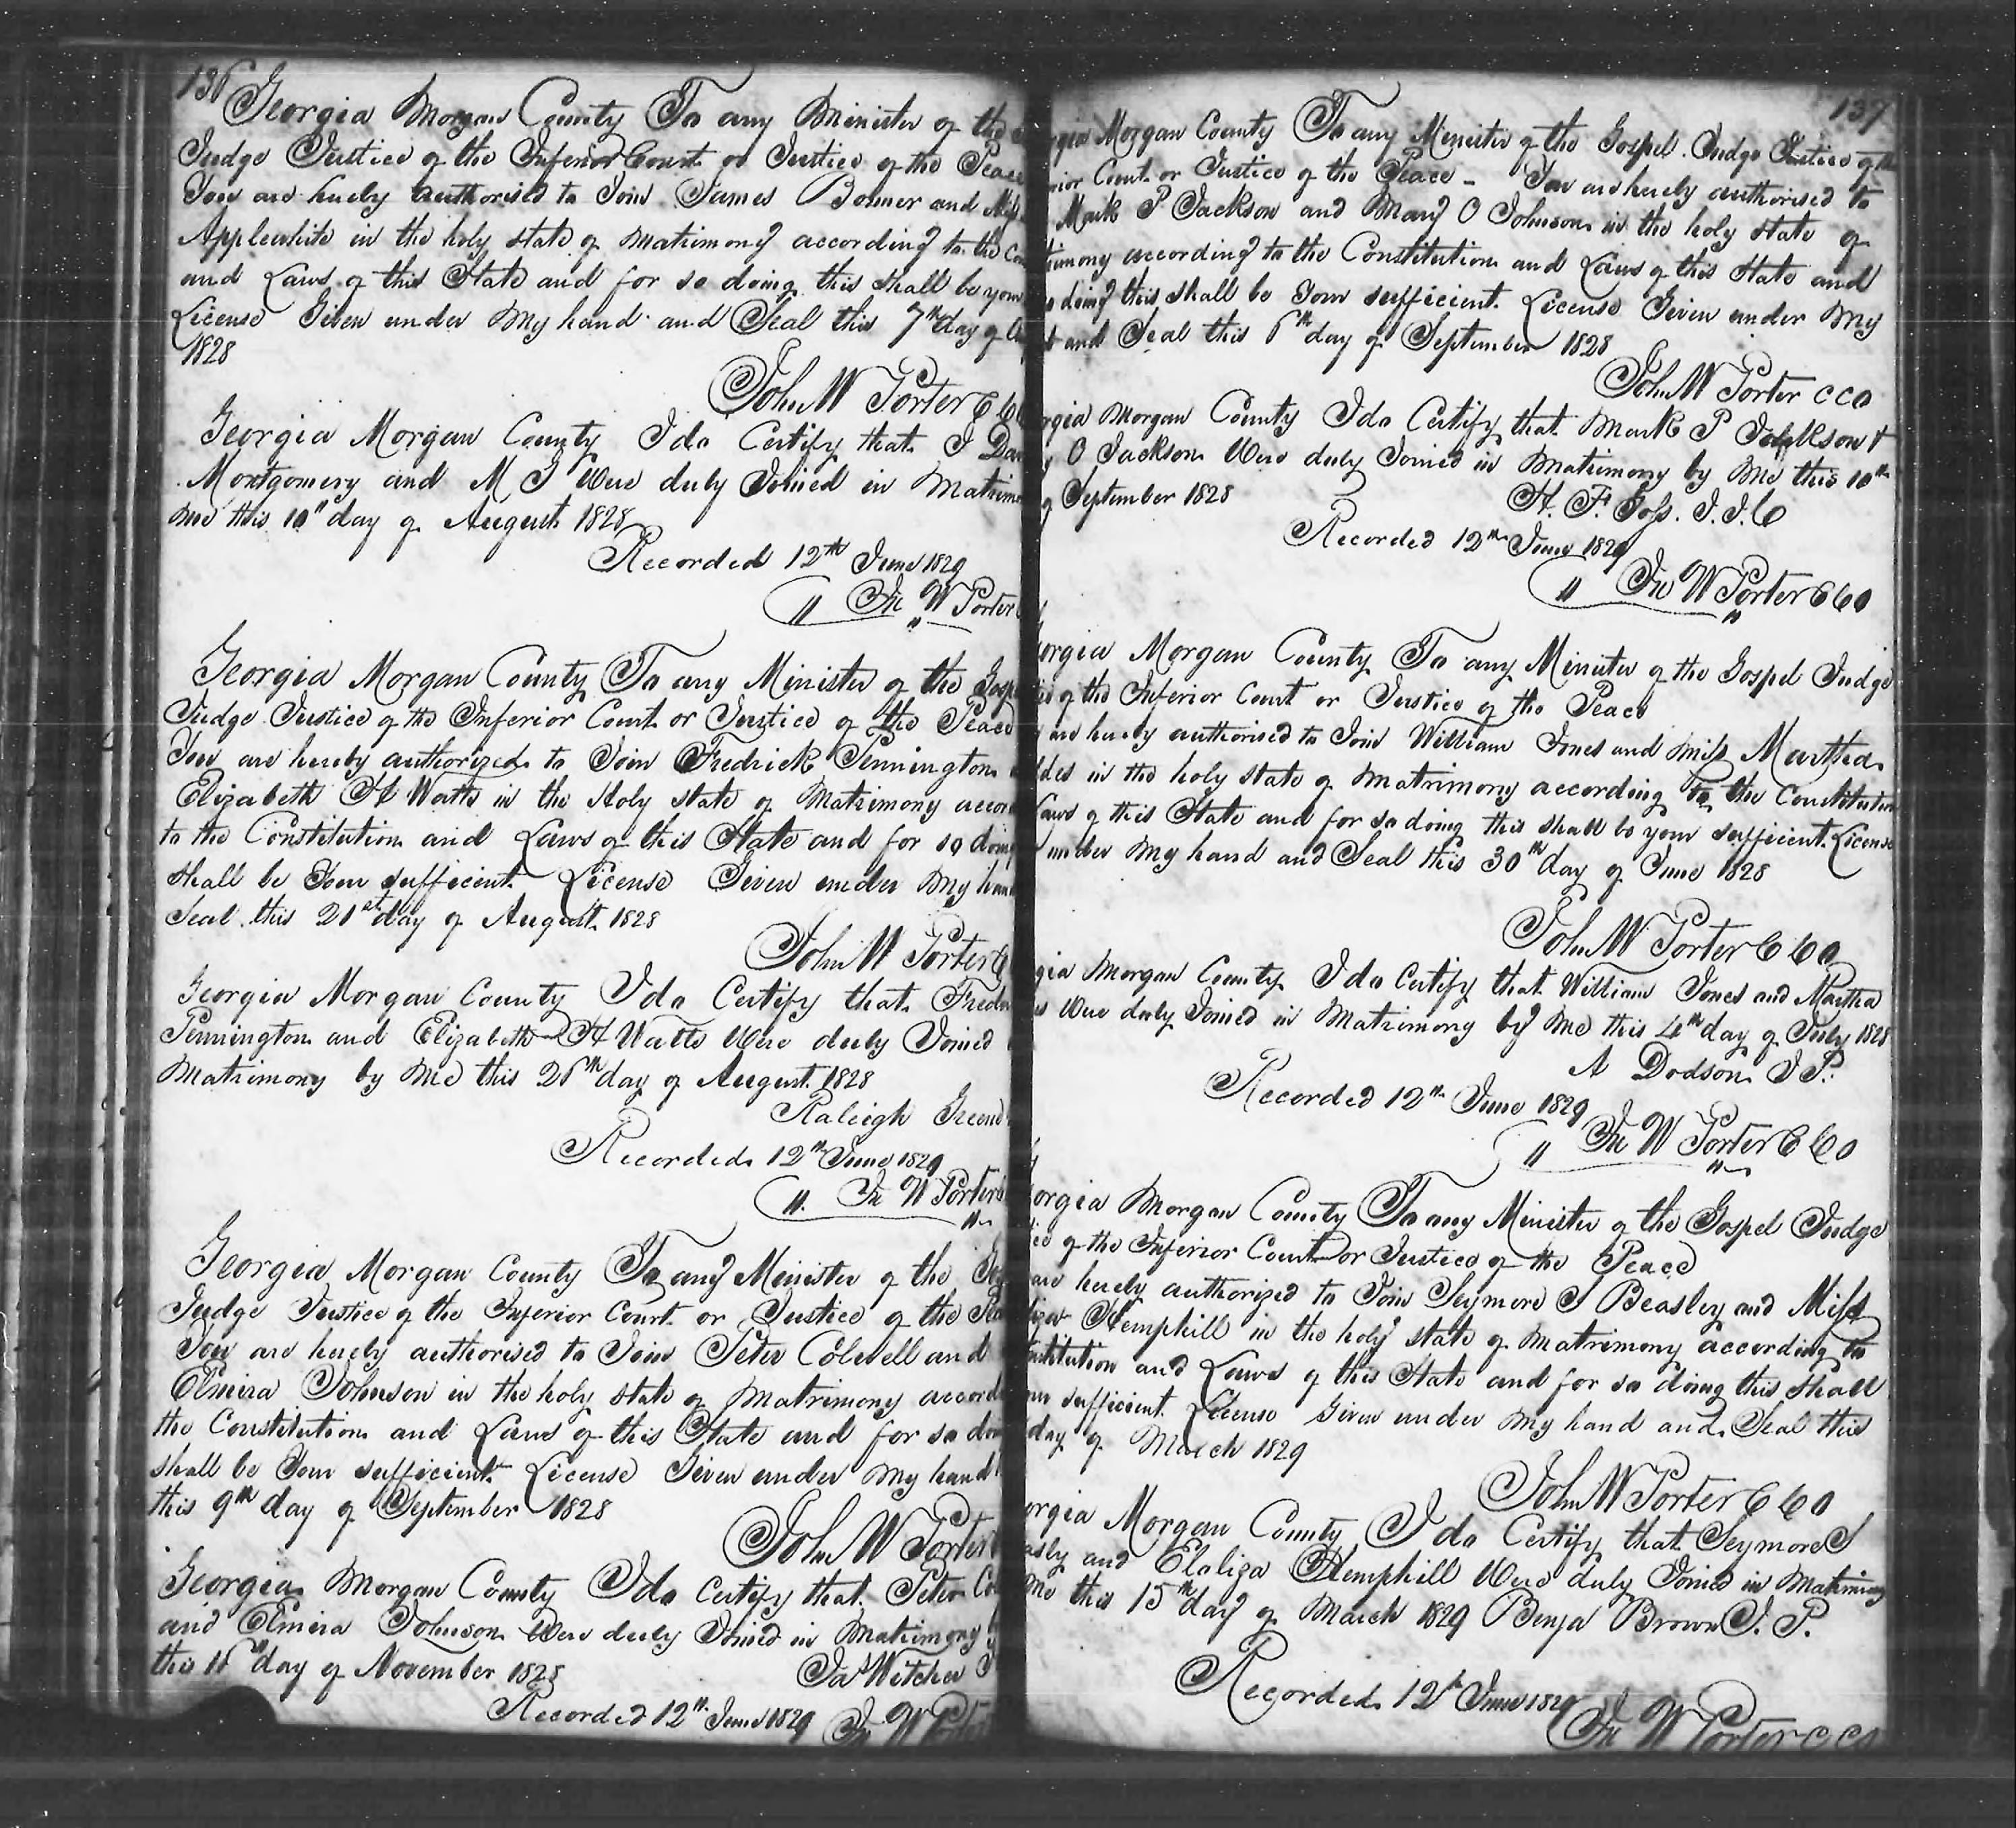 136
Georgia Morgan County To any Minister of the
Judge Justice of the Inferior Court or Justice of the Peace
You are hereby authorised to Join James Bonner and
Applewhite in the holy state of matrimony according to the
and Laws of this State and for so doing this shall be your
License Given under My hand and Seal this 7th day of
1828
John W Porter
Georgia Morgan County I do Certify that I
Montgomery and M J Were duly Joined in
me this 10th day of August 1828
Recorded 12th June 1829
Jn W Porter
Georgia Morgan County To any Minister of the
Judge Justice of the Inferior Court or Justice of the Peace
You are hereby authorized to Join Fredrick Pennington
Elizabeth H Watts in the Holy state of Matrimony
to the Constitution and Laws of this State and for so
shall be Your sufficient License Given under My
Seal this 21st day of August 1828
John W Porter
Georgia Morgan County I do Certify that
Pennington and Elizabeth H Watts Were duly Joined
Matrimony by Me this 26th day of August 1828
Raleigh Greene
Recorded 12th June 1829
Jn W Porter
Georgia Morgan County To any Minister of the
Judge Justice of the Inferior Court or Justice of the
You are hereby authorised to Join Peter Colwell and
Elmira Johnson in the holy state of Matrimony
the Constitution and Laws of this State and for so
shall be Your sufficient License Given under My hand
this 9th day of September 1828
John W Porter
Georgia Morgan County I do Certify that Peter
and Elmira Johnson Were duly Joined in Matrimony
this 16th day of November 1828
Jas Witcher
Recorded 12th June 1829
Jn W Porter
137
Morgan County To any Minister of the Gospel Judge Justice of the
Court or Justice of the Peace - You are hereby authorised to
Mark P Jackson and Mary O Johnson in the holy state of
according to the Constitution and Laws of this State and
doing this shall be Your sufficient License Given under My
and Seal this 6th day of September 1828
John W Porter CCO
Morgan County I do Certify that Mark P &
O Jackson Were duly Joined in Matrimony by Me this 10th
September 1828
H. F. Foss. J. I. C
Recorded 12th June 1829
Jn W Porter CCO
Morgan County To any Minister of the Gospel Judge
of the Inferior Court or Justice of the Peace
are hereby authorised to Join William Jones and Miss Martha
in the holy state of Matrimony according to the Constitution
Laws of this State and for so doing this shall be your sufficient License
under My hand and Seal this 30th day of June 1828
John W Porter CCO
Morgan County I do Certify that William Jones and Martha
Were duly Joined in Matrimony by Me this 4th day of July 1828
A Dodson J P.
Recorded 12th June 1829
Jn W Porter CCO
Morgan County To any Minister of the Gospel Judge
of the Inferior Court or Justice of the Peace
are hereby authorized to Join Seymore S Beasley and Miss
Hemphill in the holy state of matrimony according to
and Laws of this State and for so doing this shall
sufficient License Given under My hand and Seal this
day of March 1829
John W Porter CCO
Morgan County I do Certify that Seymore S
and Elaliza Hemphill Were duly Joined in Matrimony
Me this 15th day of March 1829 Benja Brown J. P.
Recorded 12th June 1829
Jn W Porter CCO